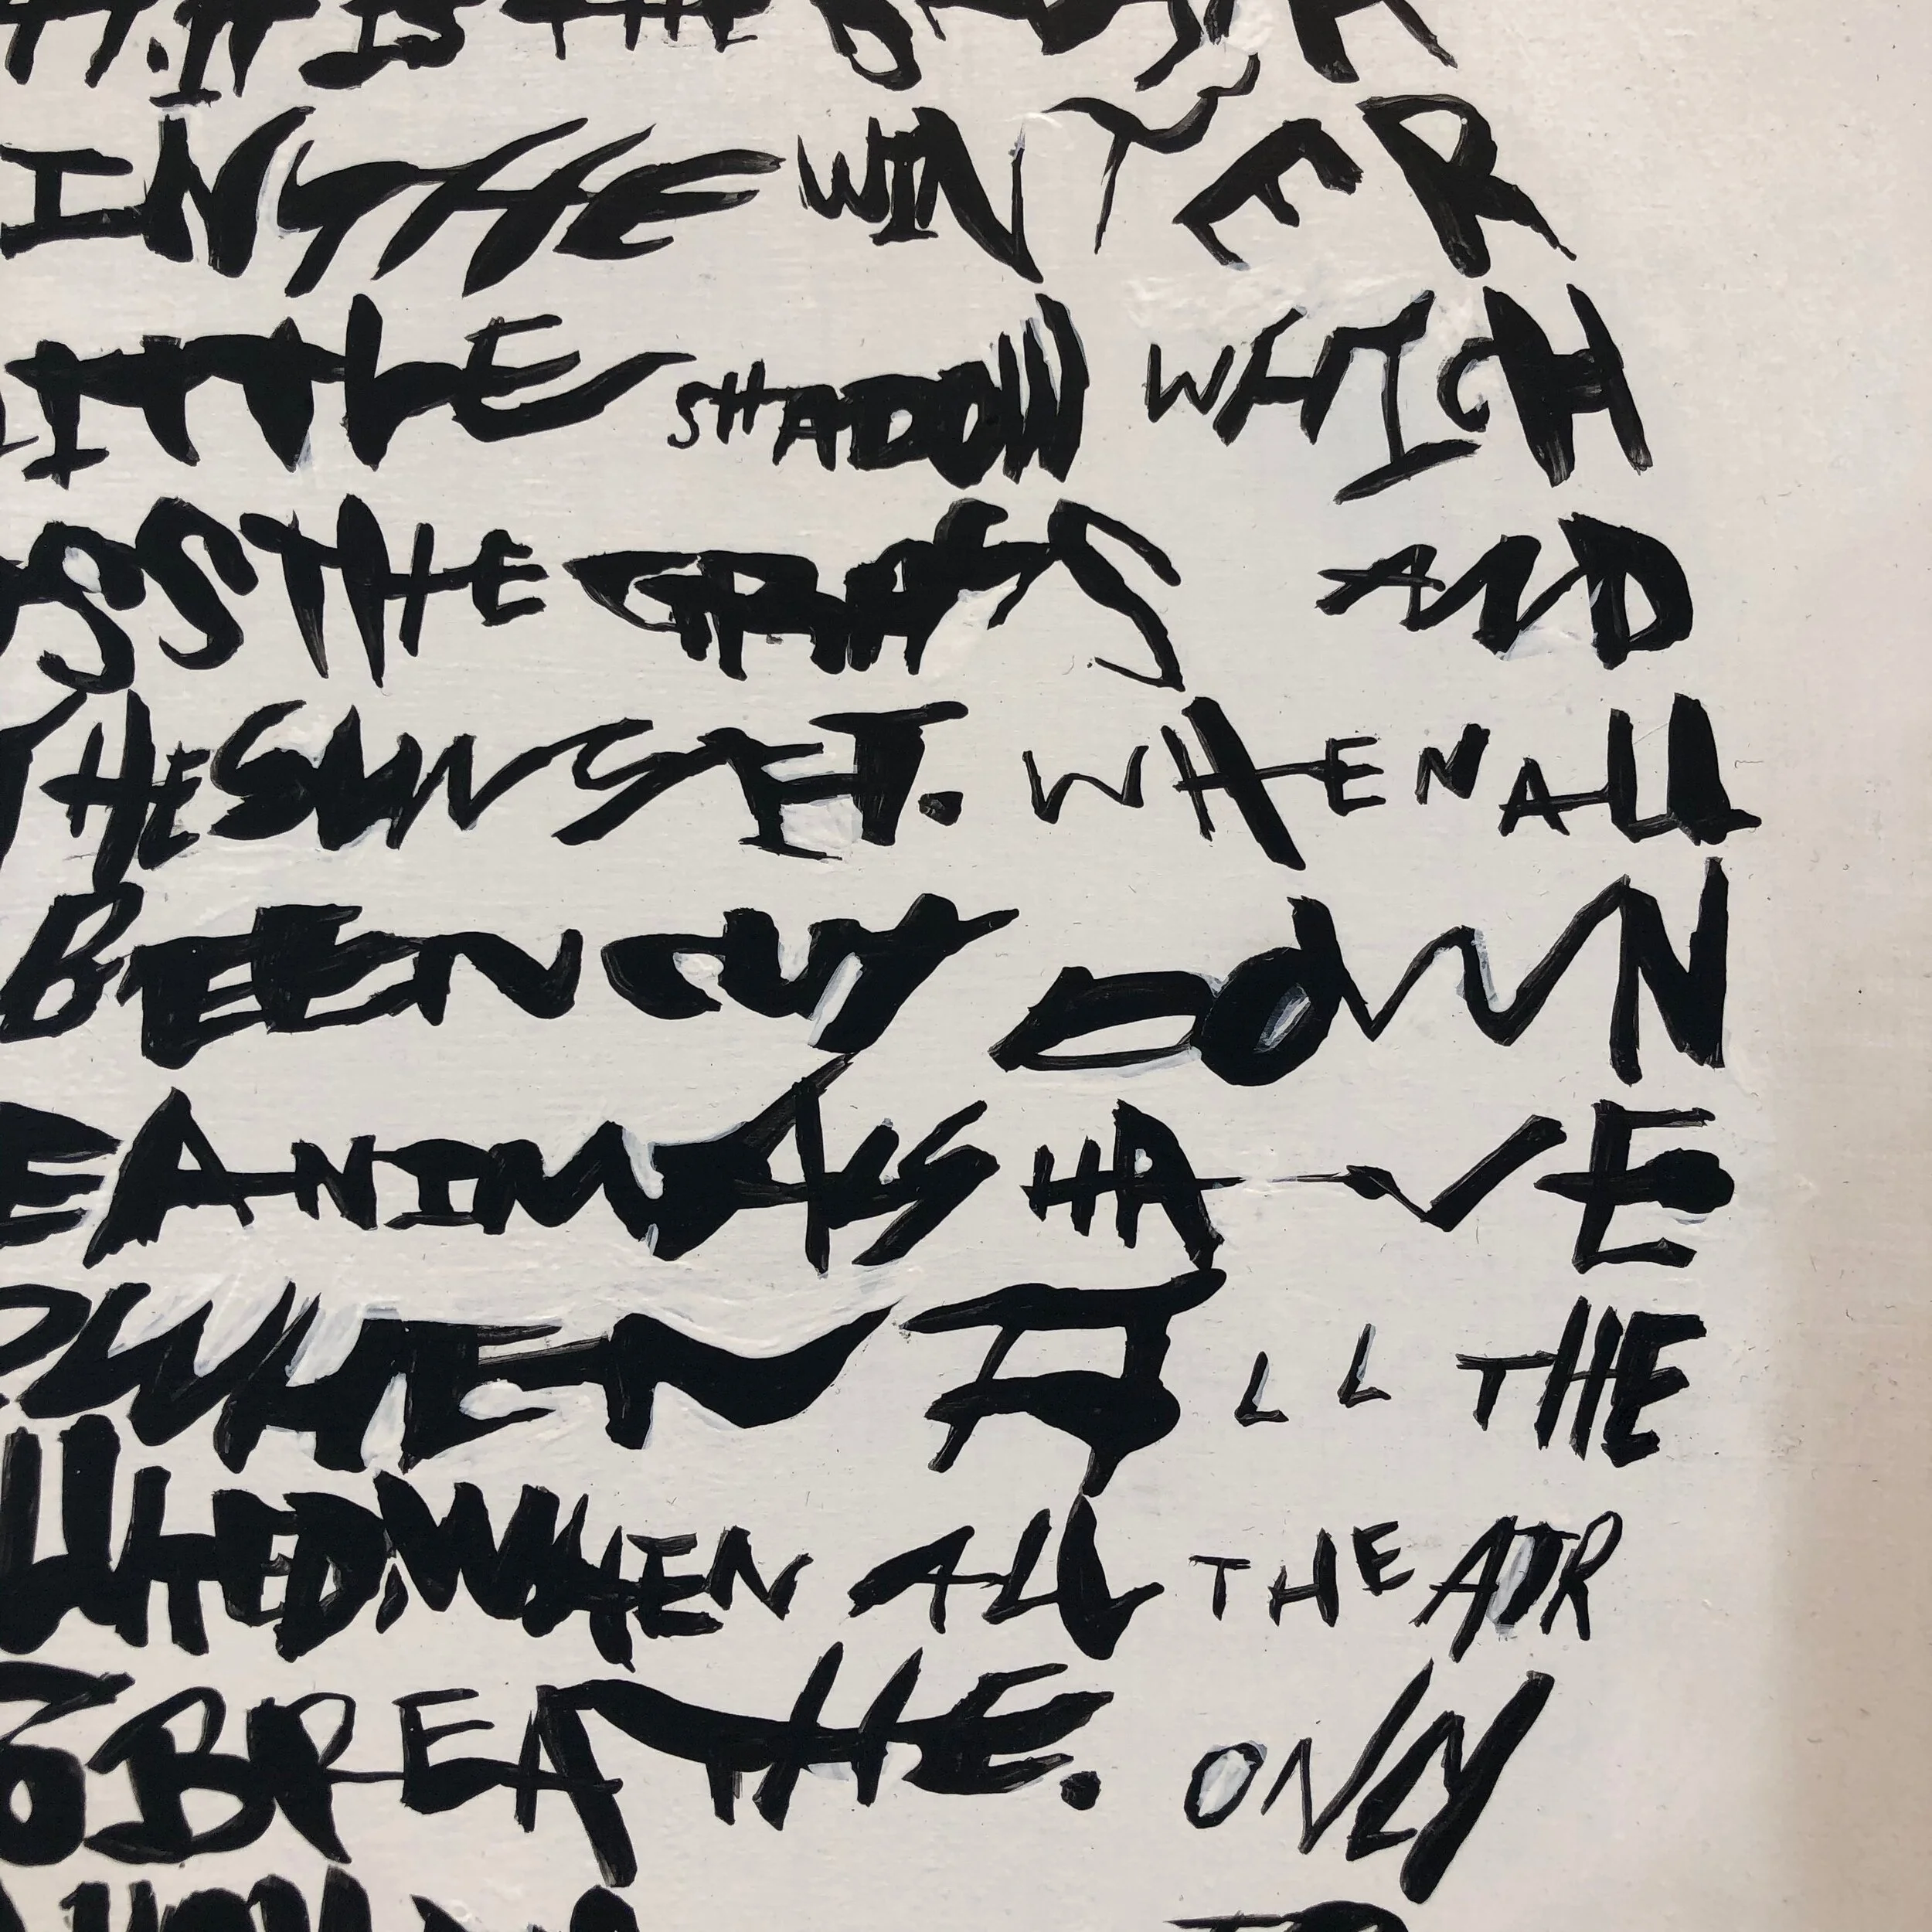 IT IS THE BREATH
IN THE WINTER
LITTLE SHADOW WHICH
SS THE GRASS AND
THE SUNSET. WHEN ALL
BEEN CUT DOWN
E ANIMALS HAVE
WHEN ALL THE
LLUTED, WHEN ALL THE AIR
TO BREATHE. ONLY